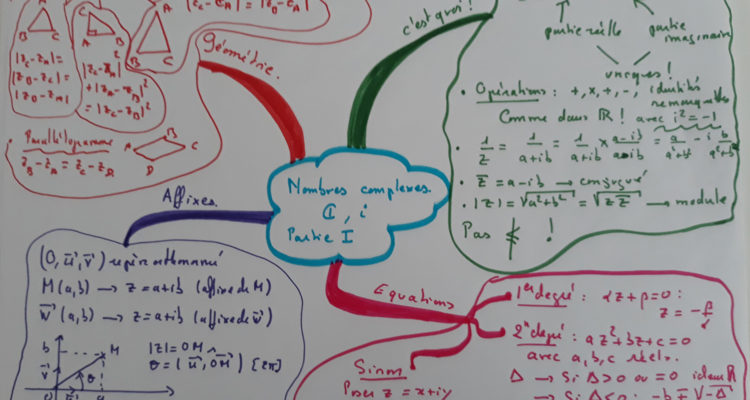 |z_C - z_A| = |z_B - z_A|
A
B
C
A
B
C
A
B
C
|z_C - z_A|²
+ |z_A - z_B|²
= |z_C - z_B|²
Géométrie.
Parallélogramme
A B C D
z_B - z_A = z_C - z_D
c'est quoi !
partie réelle
partie imaginaire
uniques !
• Opérations : +, x, ÷, -, identités remarquables
Comme dans ℝ ! avec i² = -1
• 1/z = 1/(a+ib) = 1/(a+ib) × (a-ib)/(a-ib) = a/(a²+b²) - i b/(a²+b²)
• z̄ = a-ib → conjugué
• |z| = √(a²+b²) = √(z z̄) → module
Pas !
Nombres complexes.
ℂ, i
Partie I
Affixes.
(O, u⃗, v⃗) repère orthonormé
M(a,b) → z = a+ib (affixe de M)
w⃗(a,b) → z = a+ib (affixe de w⃗)
b
M
v⃗
θ
a
|z| = OM
θ = (u⃗, OM⃗) [2π]
Equations
1er degré : αz + β = 0 :
z = -β/α
2e degré : az² + bz + c = 0
avec a, b, c réels.
Δ → Si Δ > 0 ou = 0 idem ℝ
→ Si Δ < 0 : -b ∓ √-Δ
Sinon
Poser z = x+iy